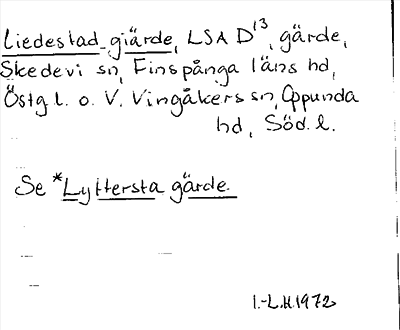 Liedestad giärde, LSA D¹³, gärde,
Skedevi sn, Finspånga läns hd,
Östg. l. o. V. Vingåkers sn, Oppunda
hd, Söd. l.
Se *Lyttersta gärde.
I.-L.H. 1972